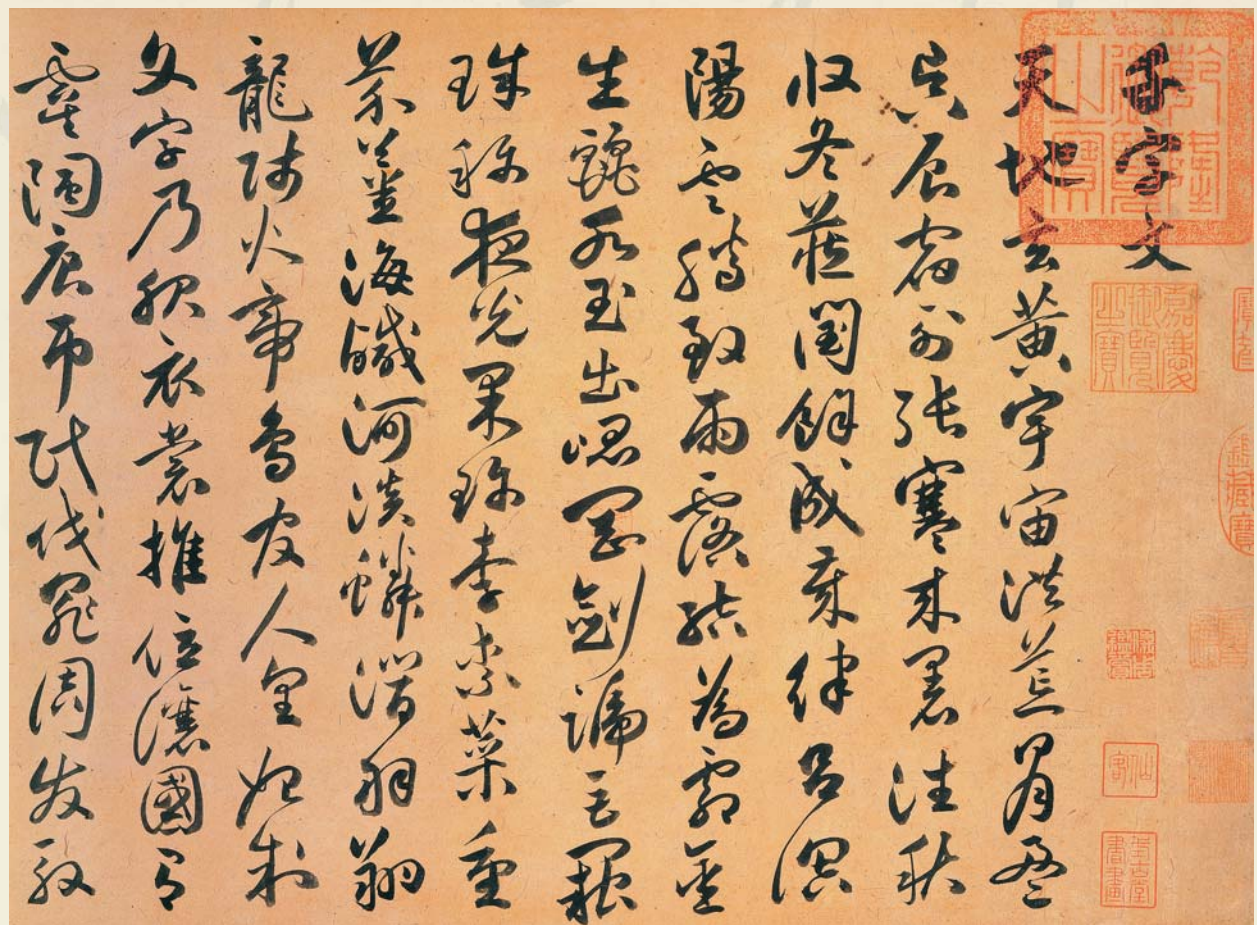 千字文
天地玄黃宇宙洪荒日月盈
昃辰宿列張寒來暑往秋
收冬蔵閏餘成歲律呂調
陽雲騰致雨露結為霜金
生麗水玉出崑岡劍號巨闕
珠稱夜光果珍李柰菜重
芥薑海鹹河淡鱗潛羽翔
龍師火帝鳥官人皇始制
文字乃服衣裳推位讓國有
虞陶唐弔民伐罪周發殷
乾隆御覽之寶
嘉慶御覽之寶
鑑藏寶
仙客